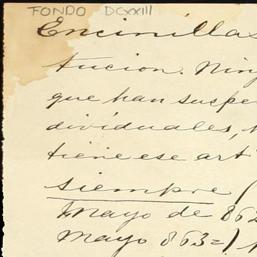 FONDO DCXXIII
Encinillas
tucion. Nin
que han suspe
dividuales,
tiene ese art
siempre (
Mayo de 862
Mayo 863=)